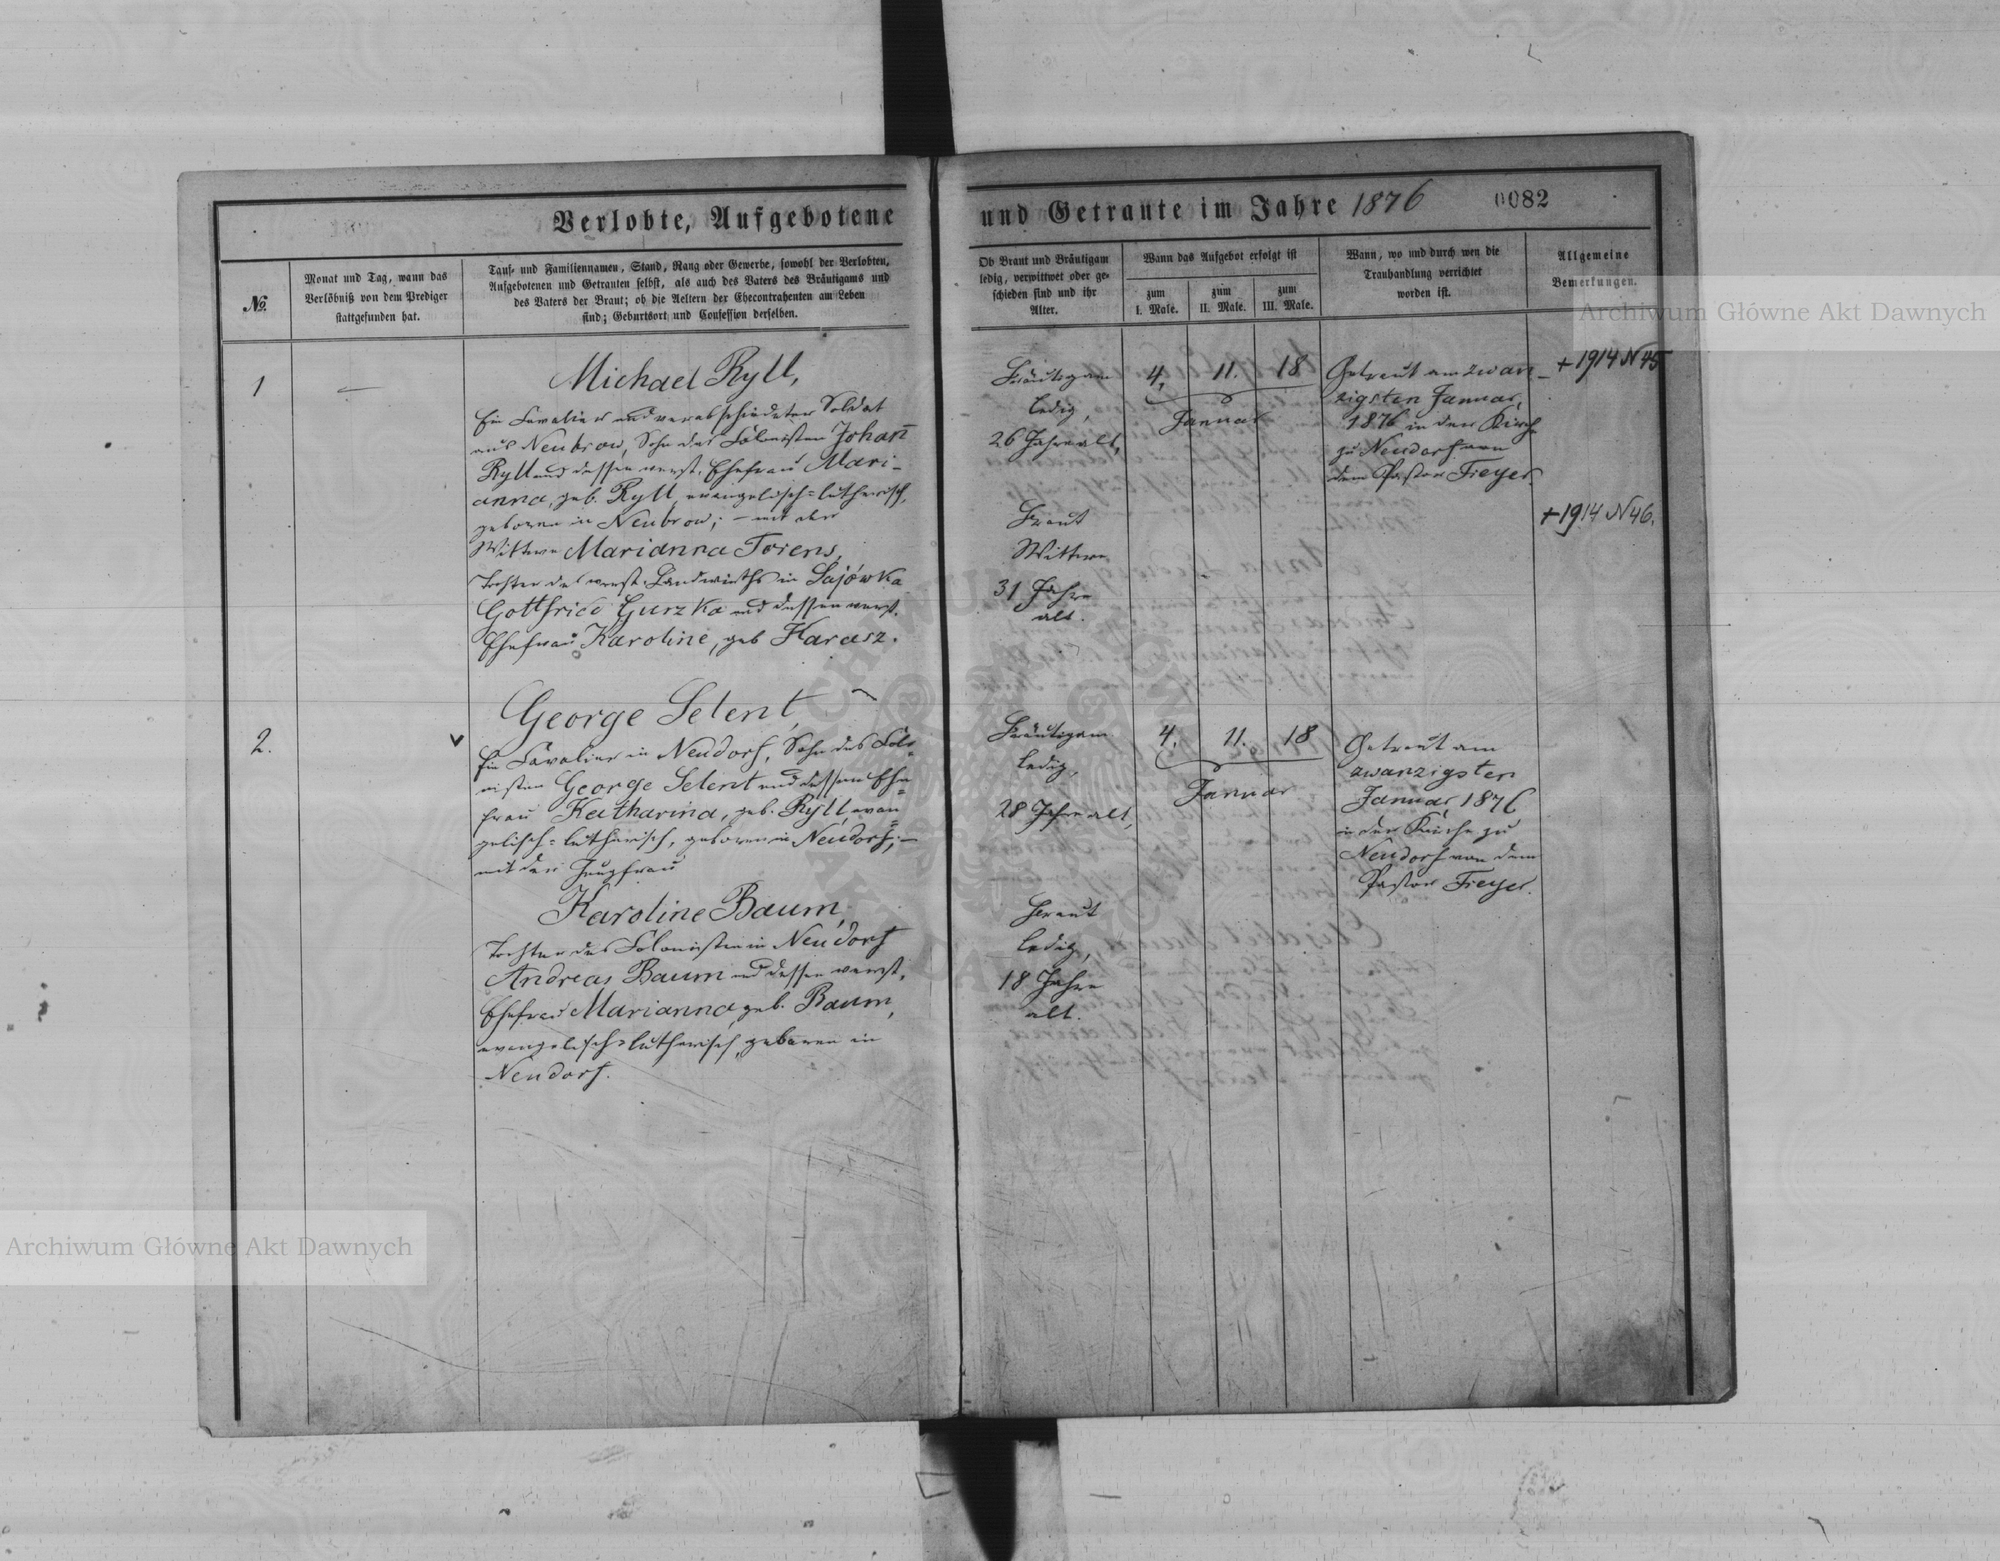 Verlobte, Aufgebotene und Getraute im Jahre 1876
0082
№.
Monat und Tag, wann das
Verlöbniß von dem Prediger
stattgefunden hat.
Tauf- und Familiennamen, Stand, Rang oder Gewerbe, sowohl der Verlobten,
Aufgebotenen und Getrauten selbst, als auch des Vaters des Bräutigams und
des Vaters der Braut; ob die Aeltern der Ehecontrahenten am Leben
sind; Geburtsort und Confession derselben.
Ob Braut und Bräutigam
ledig, verwittwet oder ge-
schieden sind und ihr
Alter.
Wann das Aufgebot erfolgt ist
zum
I. Male.
zum
II. Male.
zum
III. Male.
Wann, wo und durch wen die
Trauhandlung verrichtet
worden ist.
Allgemeine
Bemerkungen.
1
Michael Ryll,
Ein Cavalier und verabschiedeter Soldat
aus Neubrow, Sohn des Colonisten Johañ
Ryll und dessen verst. Ehefrau Mari-
anna, geb. Ryll, evangelisch=lutherisch,
geboren in Neubrow; – mit der
Wittwe Marianna Torens,
Tochter des verst. Landwirths in Sajówka
Gottfried Gurzka und dessen verst.
Ehefrau Karoline, geb Harasz.
Bräutigam
ledig,
26 Jahre alt,
Braut
Wittwe,
31 Jahre
alt.
4, 11. 18
Januar
Getraut am zwan-
zigsten Januar,
1876 in der Kirche
zu Neudorf von
dem Pastor Freyer.
+ 1914 N 45
+ 1914 N 46.
2.
George Selent,
Ein Cavalier in Neudorf, Sohn des Colo=
nisten George Selent und dessen Ehe=
frau Katharina, geb. Ryll, evan=
gelisch=lutherisch, geboren in Neudorf; –
mit der Jungfrau
Karoline Baum,
Tochter des Colonisten in Neudorf
Andreas Baum und dessen verst.
Ehefrau Marianna, geb. Baum,
evangelisch=lutherisch, geboren in
Neudorf.
Bräutigam
ledig,
28 Jahre alt,
Braut
ledig,
18 Jahre
alt.
4. 11. 18
Januar
Getraut am
zwanzigsten
Januar, 1876
in der Kirche zu
Neudorf von dem
Pastor Freyer.
Archiwum Główne Akt Dawnych
Archiwum Główne Akt Dawnych